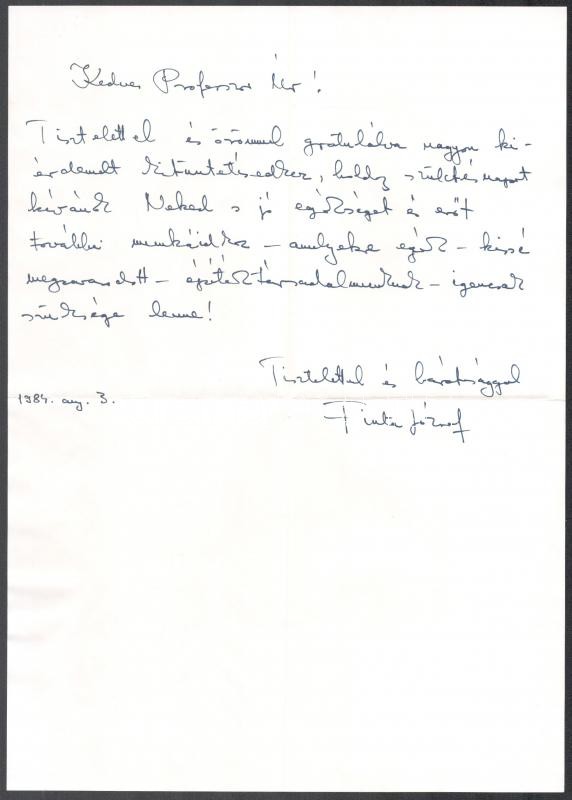 Kedves Professzor Úr!
Tisztelettel és örömmel gratulálva nagyon ki-
érdemelt kitüntetésedhez, boldog születésnapot
kívánok Neked s jó egészséget és erőt
további munkáidhoz – amelyekre egész – kissé
megzavarodott – építésztársadalmunknak – igencsak
szüksége lenne!
Tisztelettel és barátsággal
1984. aug. 3.
Finta József